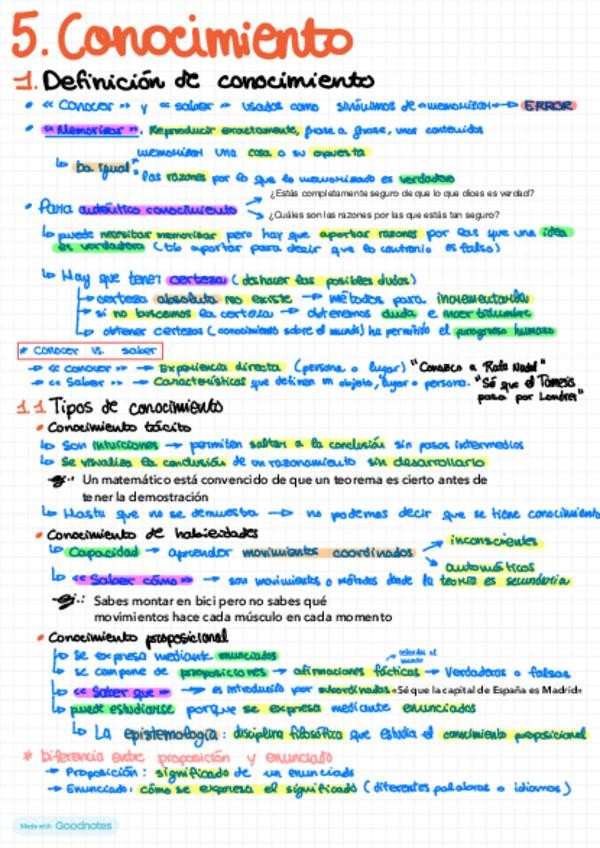 5. Conocimiento
1. Definición de conocimiento
• «Conocer» y «saber» usados como sinónimos de «memorizar» → ERROR
• «Memorizar». Reproducir exactamente, frase a frase, unos contenidos
↳ Da igual memorizar una cosa o su opuesta
las razones por lo que lo memorizado es verdadero
• Para auténtico conocimiento
¿Estás completamente seguro de que lo que dices es verdad?
¿Cuáles son las razones por las que estás tan seguro?
↳ puede necesitar memorizar pero hay que aportar razones por las que una idea
es verdadera (tb aportar para decir que lo contrario es falso)
↳ Hay que tener certeza (deshacer las posibles dudas)
certeza absoluta no existe → métodos para incrementarla
si no buscamos la certeza → obtenemos duda e incertidumbre
obtener certezas (conocimiento sobre el mundo) ha permitido el progreso humano
* Conocer vs. saber
→ «Conocer» → Experiencia directa (persona o lugar) "Conozco a Rafa Nadal"
→ «Saber» → Características que definen un objeto, lugar o persona. "Sé que el Támesis
pasa por Londres"
1.1 Tipos de conocimiento
• Conocimiento tácito
↳ Son intuiciones → permiten saltar a la conclusión sin pasos intermedios
↳ Se visualiza la conclusión de un razonamiento sin desarrollarlo
Ej.: Un matemático está convencido de que un teorema es cierto antes de
tener la demostración
↳ Hasta que no se demuestra → no podemos decir que se tiene conocimiento
• Conocimiento de habilidades
↳ Capacidad → aprender movimientos coordinados
inconscientes
automáticos
↳ «Saber cómo» → son movimientos o métodos donde la teoría es secundaria
Ej.: Sabes montar en bici pero no sabes qué
movimientos hace cada músculo en cada momento
• Conocimiento proposicional
↳ Se expresa mediante enunciados
↳ se compone de proposiciones → afirmaciones fácticas → Verdaderas o falsas
↳ «Saber que» → es introducido por subordinadas «Sé que la capital de España es Madrid»
↳ puede estudiarse porque se expresa mediante enunciados
↳ La epistemología: disciplina filosófica que estudia el conocimiento proposicional
* Diferencia entre proposición y enunciado
→ Proposición: significado de un enunciado
→ Enunciado: cómo se expresa el significado (diferentes palabras o idiomas)
Made with Goodnotes